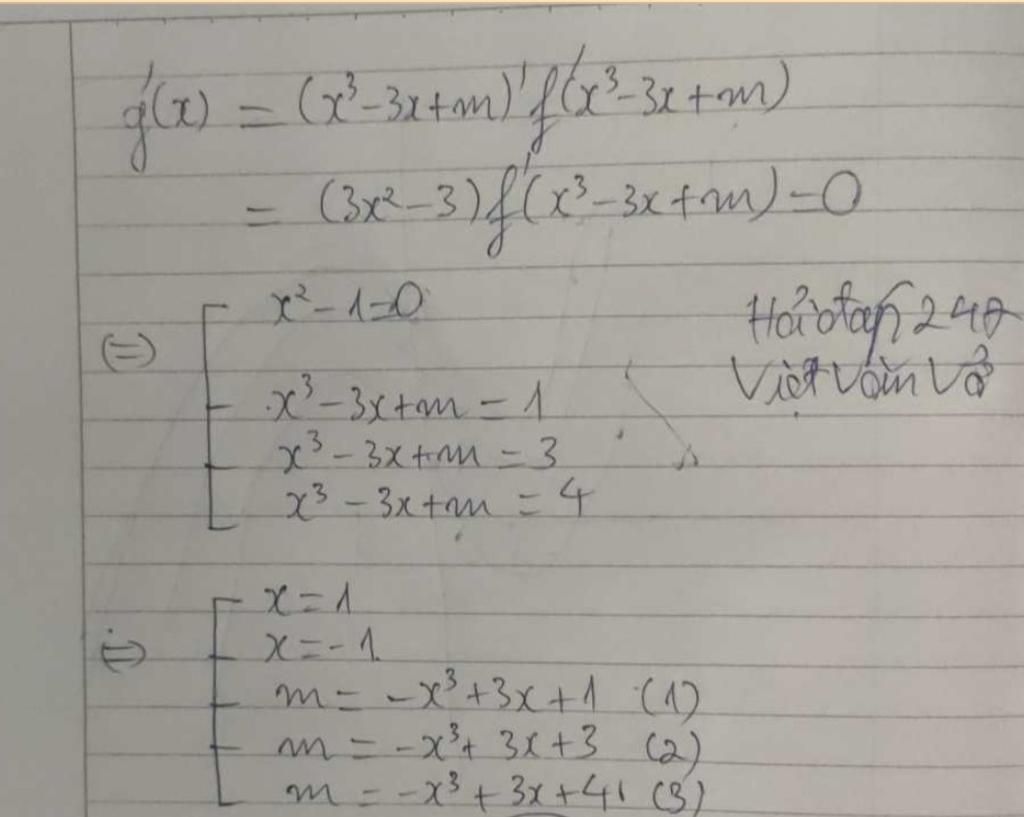 g'(x) = (x³-3x+m)' f'(x³-3x+m)
= (3x²-3) f'(x³-3x+m) = 0
(=) x²-1=0
x³-3x+m = 1
x³-3x+m = 3
x³-3x+m = 4
Hỏi đáp 247
Việt Văn Vở
(=) x=1
x=-1
m = -x³+3x+1 (1)
m = -x³+3x+3 (2)
m = -x³+3x+4 (3)